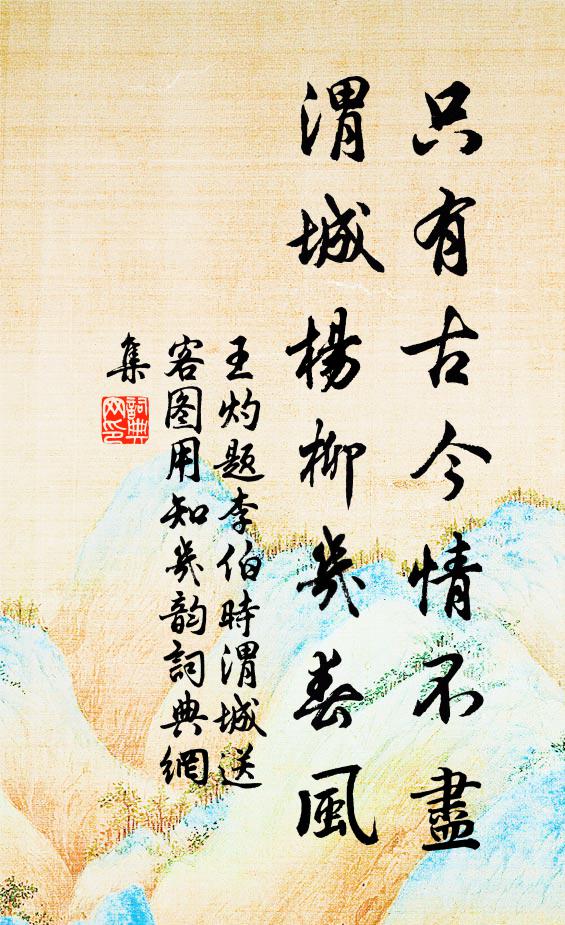 只有古今情不盡
渭城楊柳幾春風
王灼題李伯時渭城送
客图用知幾韵詞典網
集
詞典
网印